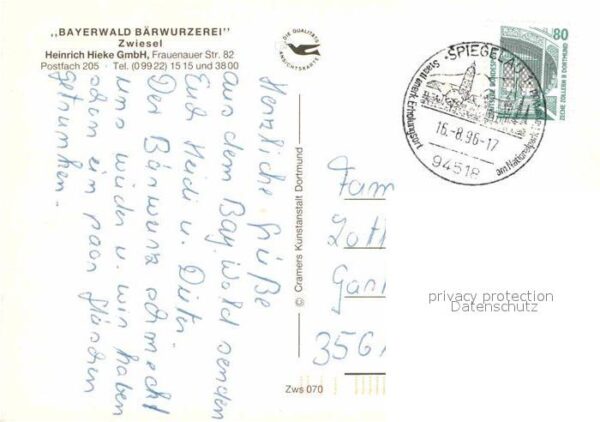 „BAYERWALD BÄRWURZEREI"
Zwiesel
Heinrich Hieke GmbH, Frauenauer Str. 82
Postfach 205 · Tel. (09922) 1515 und 3800
DIE QUALITÄTS
ANSICHTSKARTE
Herzliche Grüße
aus dem Bay. Wald senden
Euch Heidi u. Dieter
Der Bärwurz schmeckt
uns wieder u. wir haben
schon ein paar Fläschen
getrunken.
© Cramers Kunstanstalt Dortmund
Zws 070
80
DEUTSCHE BUNDESPOST
ZECHE ZOLLERN II DORTMUND
SPIEGELAU
Staatl. anerk. Erholungsort
am Nationalpark
16.-8.96-17
94518
Fam
Gar
356
privacy protection
Datenschutz